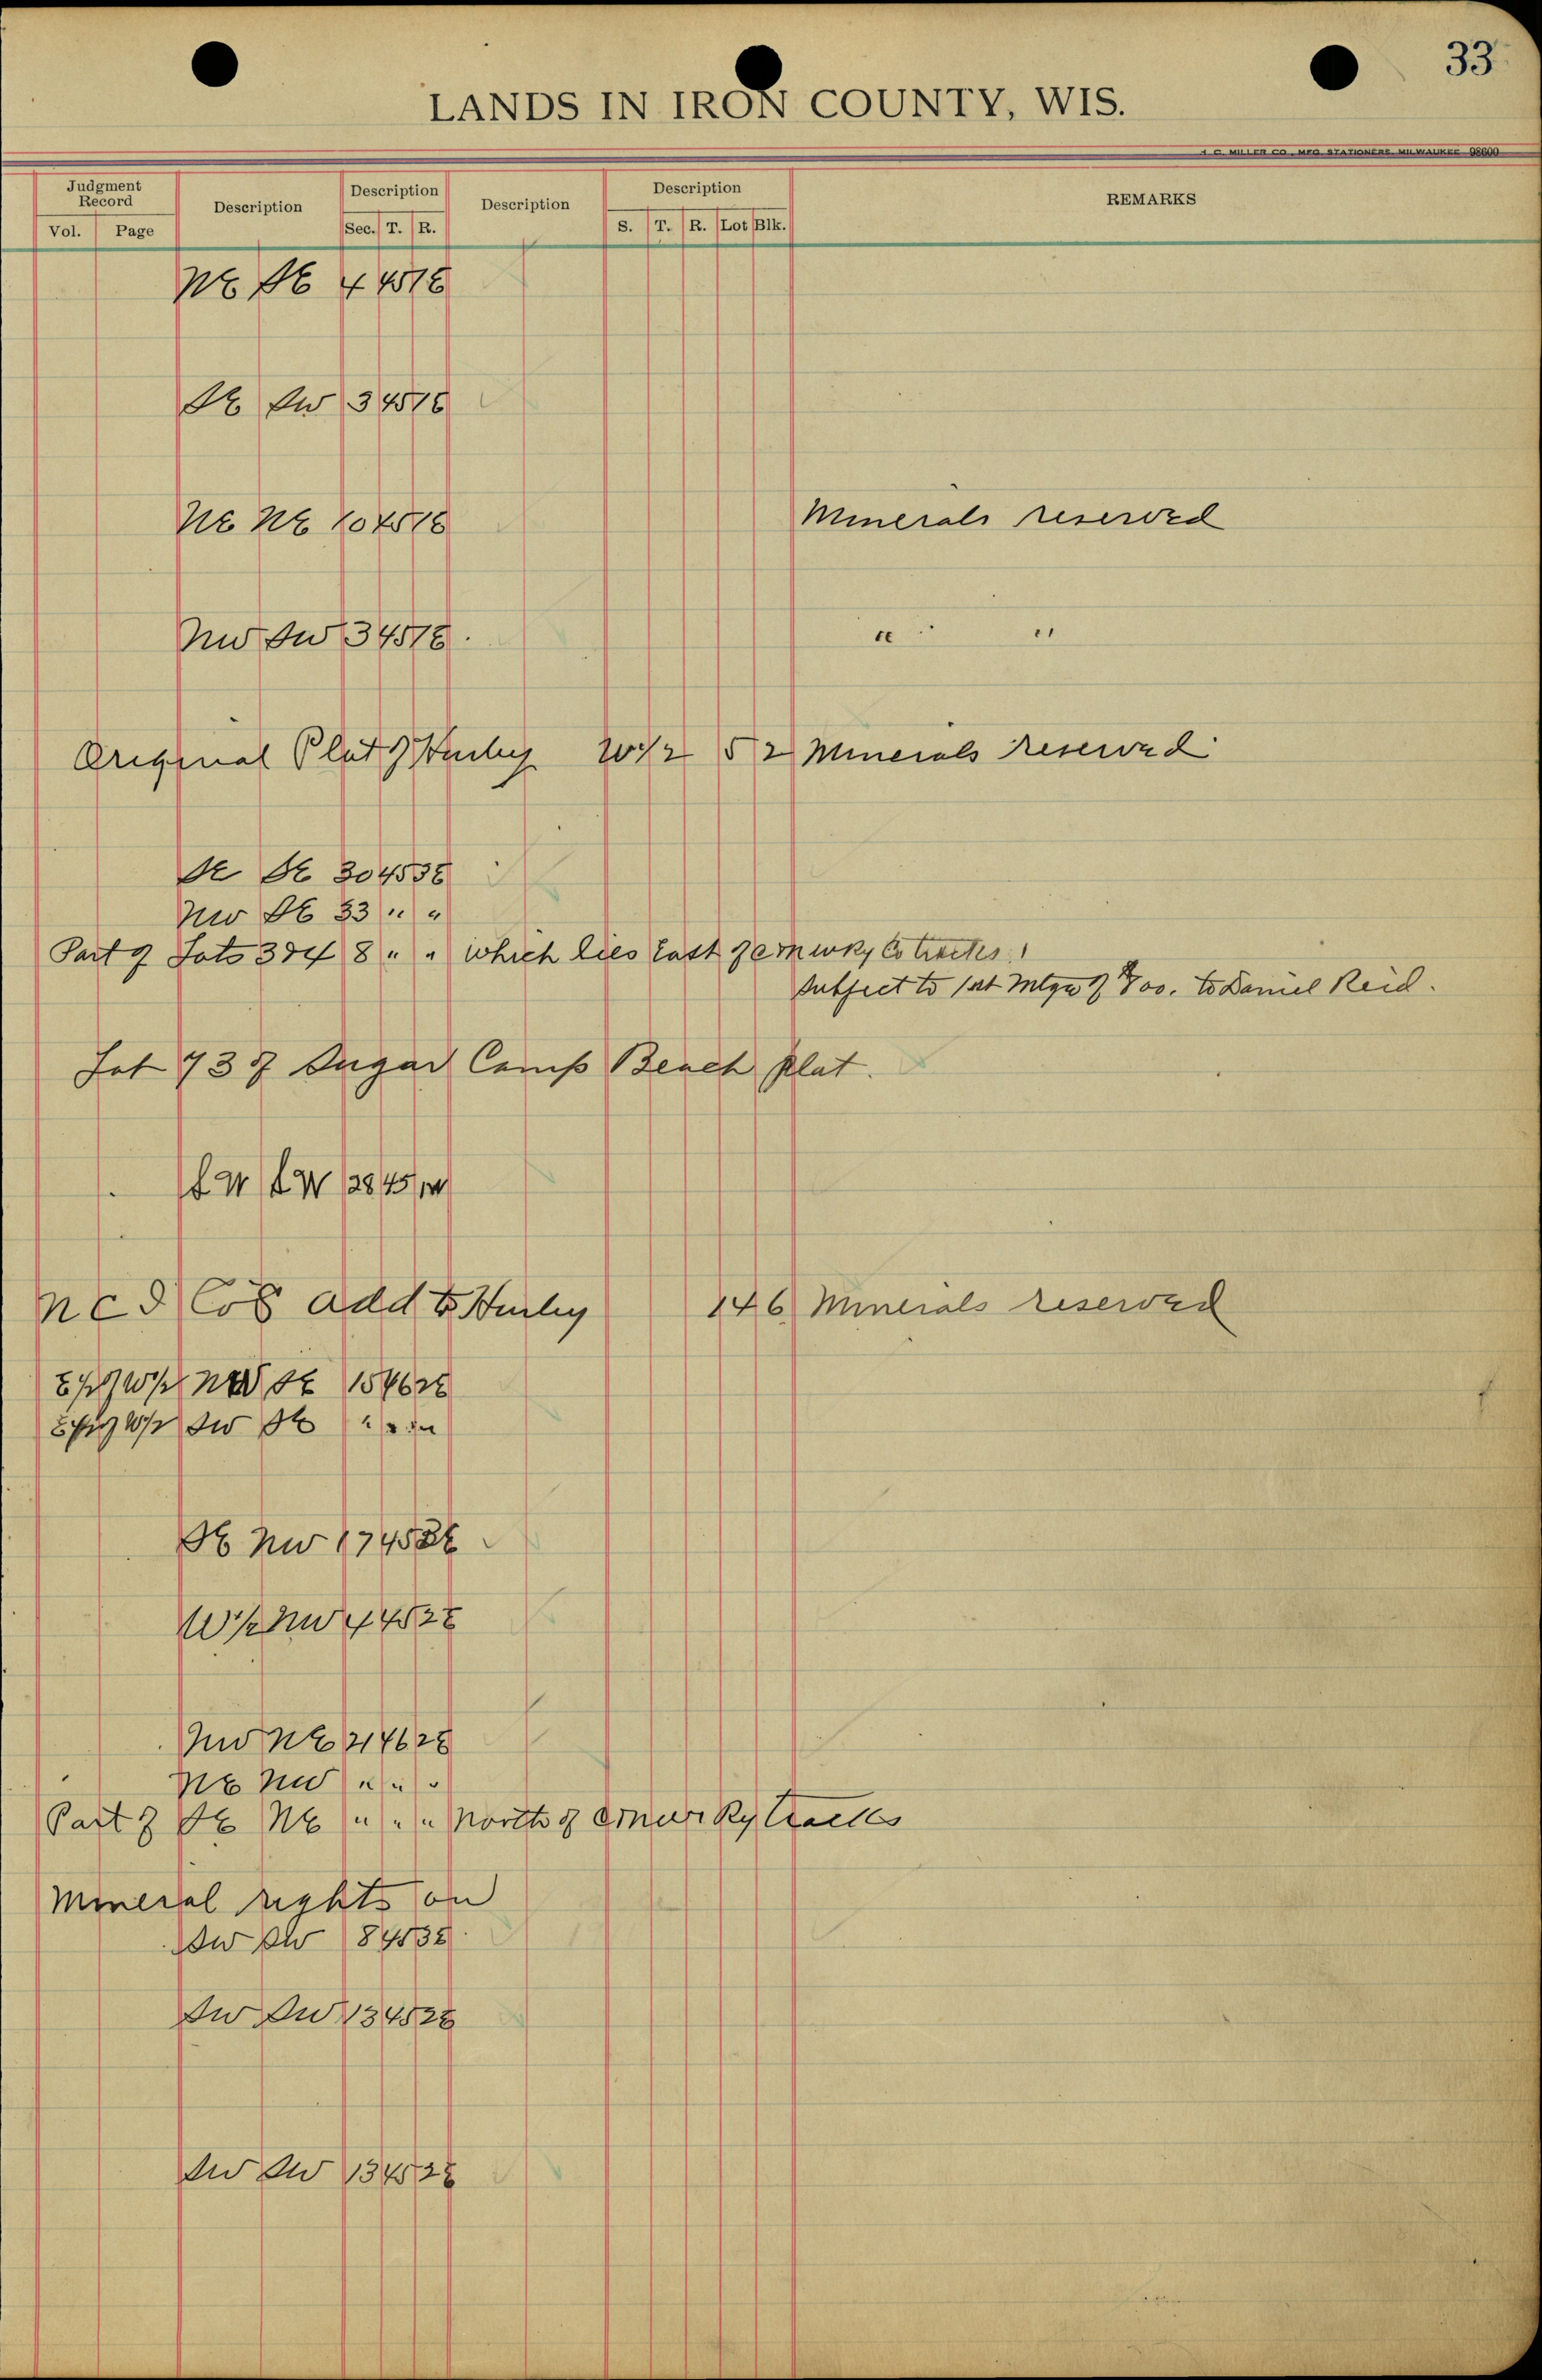 33
LANDS IN IRON COUNTY, WIS.
H. C. MILLER CO., MFG. STATIONERS, MILWAUKEE 98600
Judgment Record Description Description Description Description REMARKS
Vol. Page Sec. T. R. S. T. R. Lot Blk.
NE SE 4 45 1E
SE SW 3 45 1E
NE NE 10 45 1E Minerals reserved
NW SW 3 45 1E " "
Original Plat of Hurley W 1/2 5 2 Minerals reserved
SE SE 30 45 3E
NW SE 33 " "
Part of Lots 3 & 4 8 " " which lies East of C M & W Ry Co tracks
Subject to 1st Mtge of 800. to Daniel Reid.
Lot 73 of Sugar Camp Beach Plat.
SW SW 28 45 1W
N C D Co's Add to Hurley 14 6 Minerals reserved
E 1/2 of W 1/2 NW SE 15 46 2E
E 1/2 of W 1/2 SW SE " " "
SE NW 17 45 2E
W 1/2 NW 4 45 2E
NW NE 21 46 2E
NE NW " " "
Part of SE NE " " " North of Ry tracks
Mineral rights on
SW SW 8 45 3E
SW SW 13 45 2E
SW SW 13 45 2E